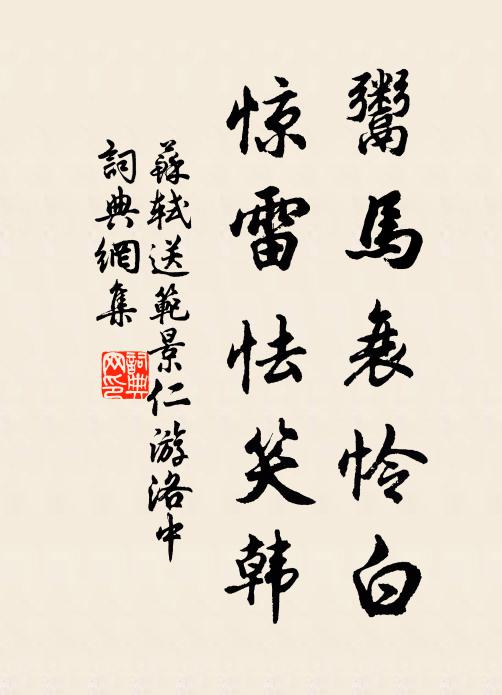 鬻馬衰怜白
惊雷怯笑韩
蘇軾送範景仁游洛中
詞典網集
詞典网印